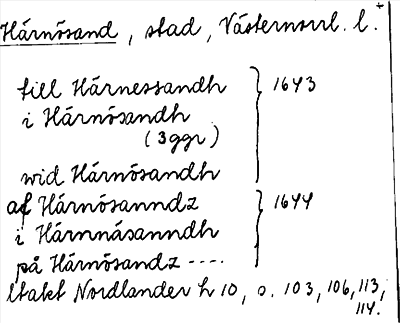 Härnösand, stad, Västernorrl. l.+
till Härnessandh } 1643
i Härnösandh
(3ggr)
wid Härnösandh
af Härnösanndz } 1644
i Härnnäsanndh
på Härnösandz ----
Nordlander h 10, s. 103, 106, 113,
114.